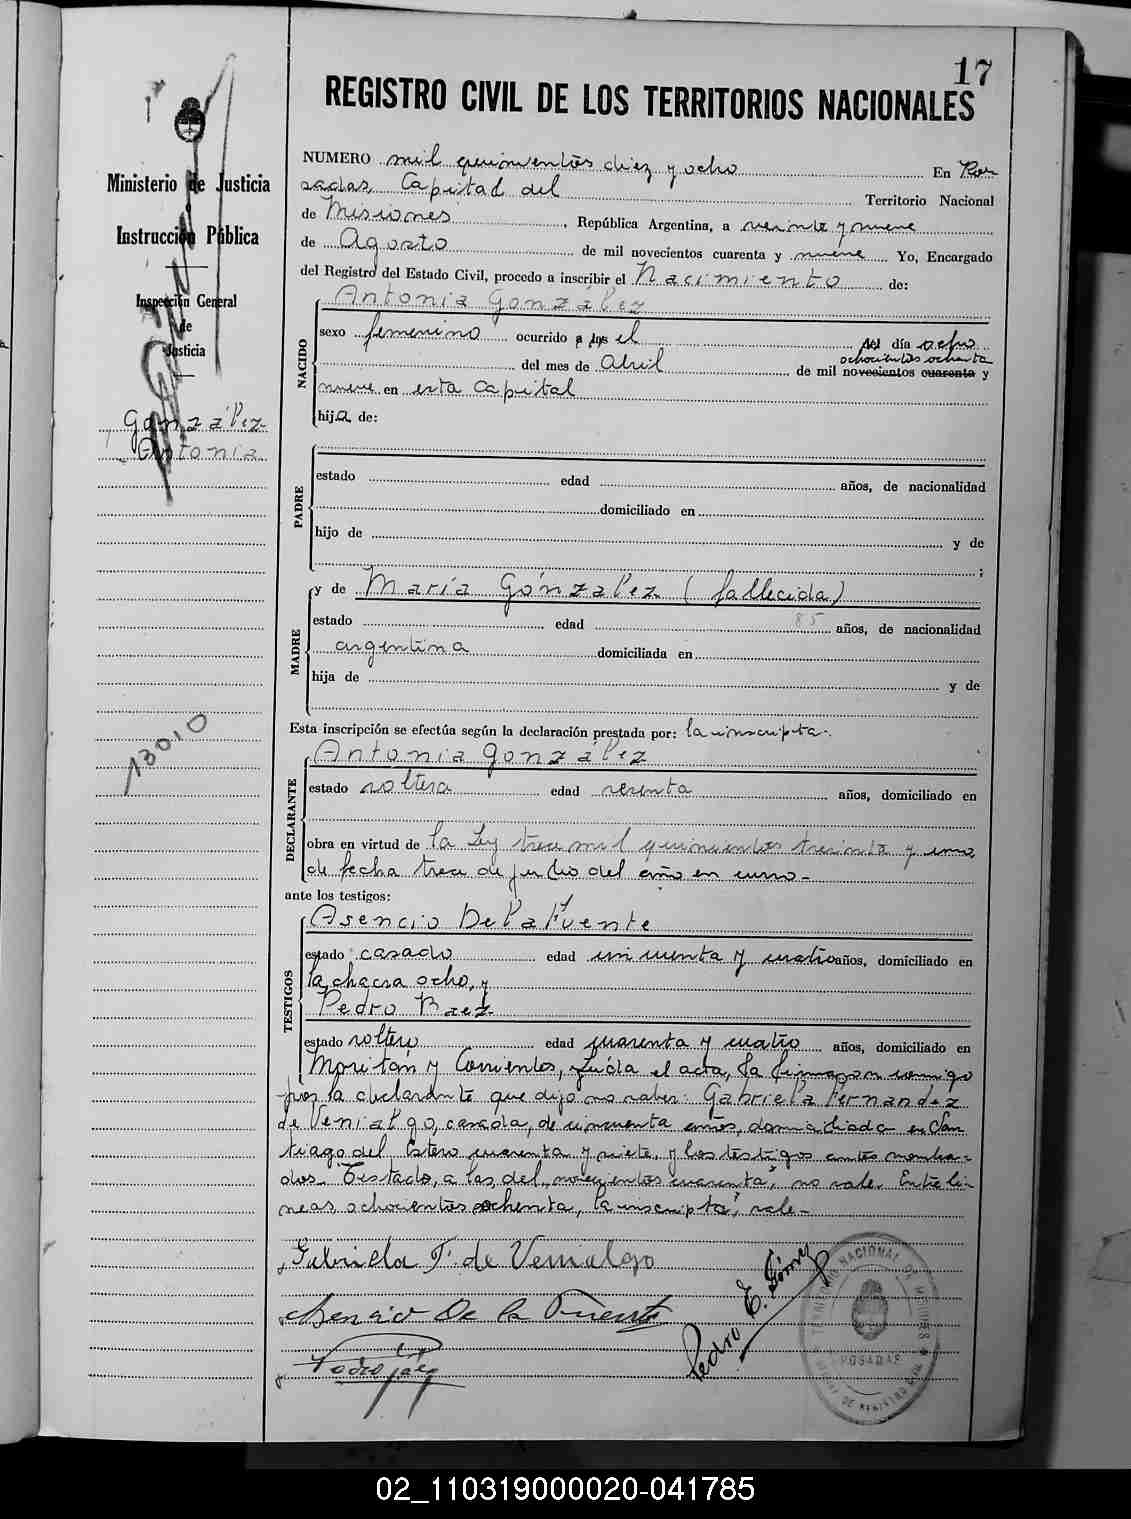 17
REGISTRO CIVIL DE LOS TERRITORIOS NACIONALES
Ministerio de Justicia
Instrucción Pública
Inspección General
de
Justicia
González
Antonia
13010
NUMERO mil quinientos diez y ocho En Po-
sadas, Capital del Territorio Nacional
de Misiones, República Argentina, a veinte y nueve
de Agosto de mil novecientos cuarenta y nueve Yo, Encargado
del Registro del Estado Civil, procedo a inscribir el Nacimiento de:
Antonia González
NACIDO
sexo femenino ocurrido a las el del día ocho
del mes de Abril de mil novecientos cuarenta y
ochocientos ochenta
nueve en esta Capital
hija de:
PADRE
estado edad años, de nacionalidad
domiciliado en
hijo de y de
;
MADRE
y de María Gónzalez (fallecida)
estado edad 85 años, de nacionalidad
argentina domiciliada en
hija de y de
Esta inscripción se efectúa según la declaración prestada por: la inscripta.
DECLARANTE
Antonia González
estado soltera edad sesenta años, domiciliado en
obra en virtud de la Ley trece mil quinientos treinta y uno
de fecha trece de Julio del año en curso-
ante los testigos:
TESTIGOS
Asencio De la Fuente
estado casado edad cincuenta y cuatro años, domiciliado en
la chacra ocho, y
Pedro Baez
estado soltero edad cuarenta y cuatro años, domiciliado en
y Corrientes, Leída el acta, la firmaron conmigo
por la declarante que dijo no saber: Gabriela Fernandez
de Venialgo, casada, de cincuenta años, domiciliada en San-
tiago del Estero cuarenta y siete, y los testigos antes nombra-
dos. Testado, a las, del, novecientos cuarenta", no vale. Entre lí-
neas ochocientos ochenta, la inscripta", vale-
Gabriela F. de Venialgo
Asencio De la Fuente
Pedro E. Gómez
Pedro Báez
TERRITORIO NACIONAL DE MISIONES
POSADAS
DE REGISTRO CIVIL
02_110319000020-041785